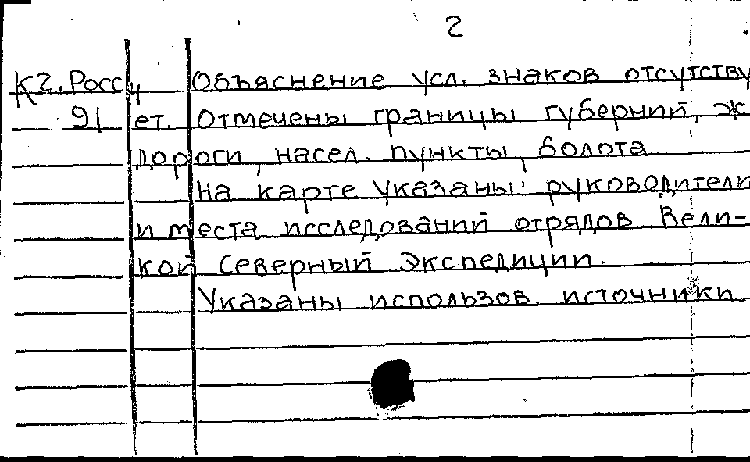 2
К2. Росси Объяснение усл. знаков отсутству
91 ет. Отмечены границы губерний, ж
дороги, насел. пункты, болота
На карте указаны: руководители
и места исследований отрядов Вели-
кой Северный Экспедиции.
Указаны использов. источники